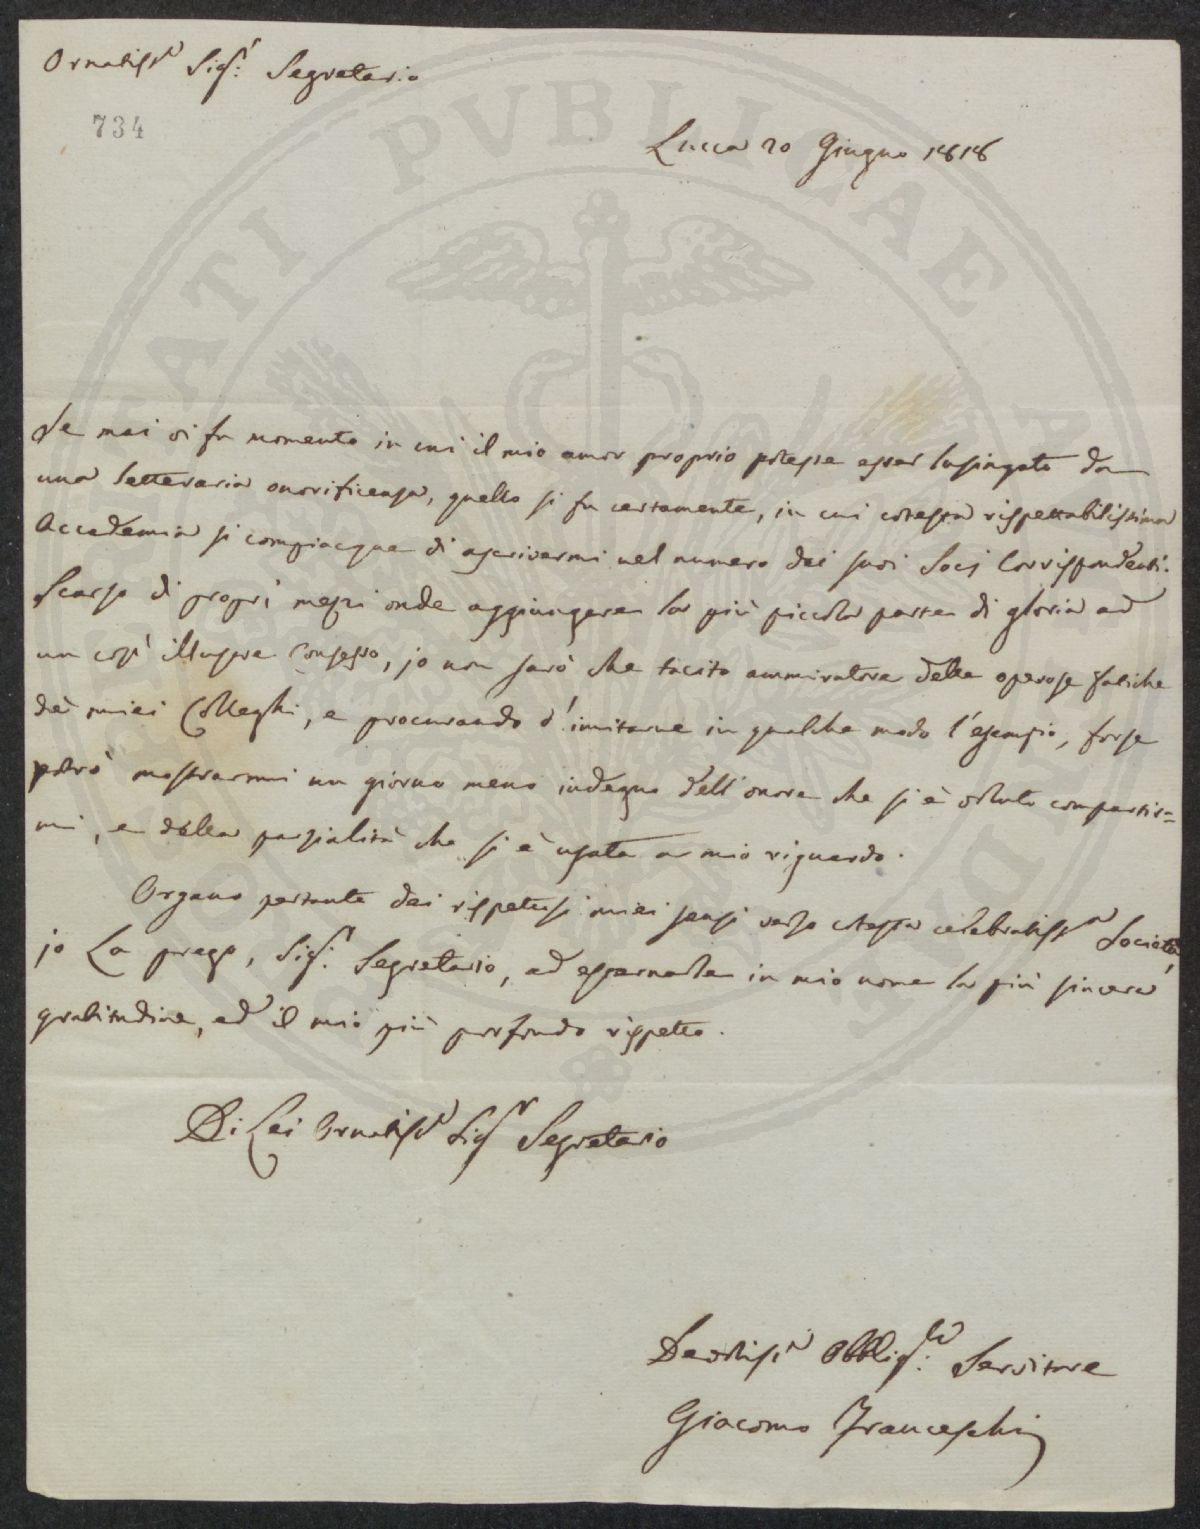 Ornatissmo Sigr: Segretario
734
Lucca 20 Giugno 1818
Se mai vi fu momento in cui il mio amor proprio potesse esser lusingato da
una letteraria onorificenza, quello si fu certamente, in cui cotesta rispettabilissima
Accademia si compiacque di ascrivermi nel numero dei suoi Socj Corrispondenti.
Scarso di proprj mezzi onde aggiungere la più piccola parte di gloria ad
un così illustre Consesso, io non sarò che tacito ammiratore delle operose fatiche
de' miei Colleghi, e procurando d'imitarne in qualche modo l'esempio, forse
potrò mostrarmi un giorno meno indegno dell'onore che si è voluto compartir=
mi, e della parzialità che si è usata a mio riguardo.
Organo pertanto dei rispettosi miei sensi verso cotesta celebratissma Società,
io La prego, Sigr: Segretario, ad esternarle in mio nome la più sincera
gratitudine, ed il mio più profondo rispetto.
Di Lei Ornatissmo Sigr Segretario
Devotissmo Obbligmo: Servitore
Giacomo Franceschi
PUBLICAE